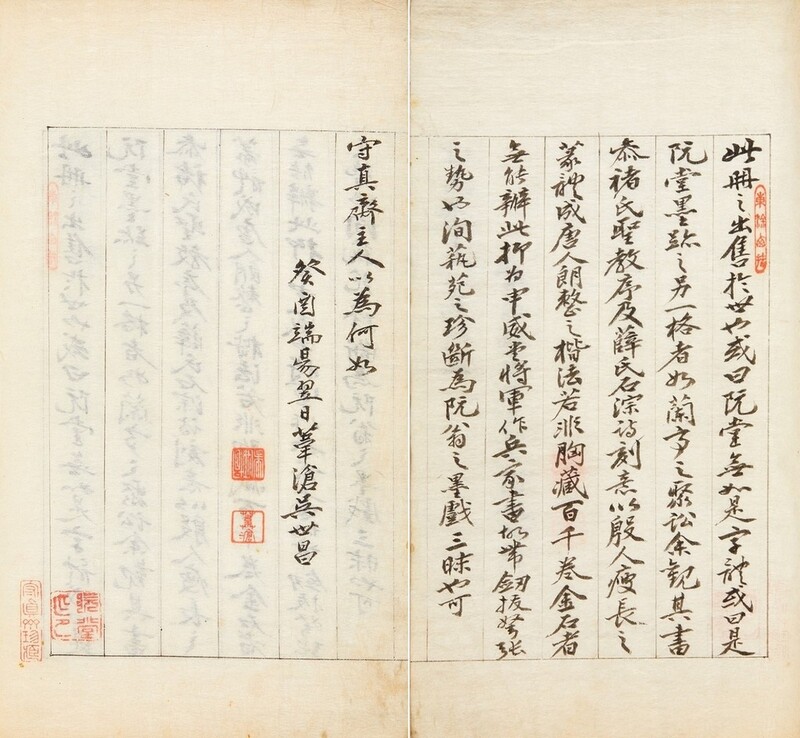 此冊之出售於世也或曰阮堂無如是字體或曰是
阮堂墨蹟之另一格者如蘭亭之聚訟余觀其書
忝褚氏聖教序及薛氏石淙詩刻意以殷人瘦長之
篆體成唐人朗整之楷法若非胸藏百千卷金石者
無能辦此抑為申威堂將軍作兵家畫故帶劒拔弩張
之勢以洵藝苑之珍斷為阮翁之墨戲三昧也可
守真齋主人以為何如
癸酉端昜翌日葦滄吳世昌